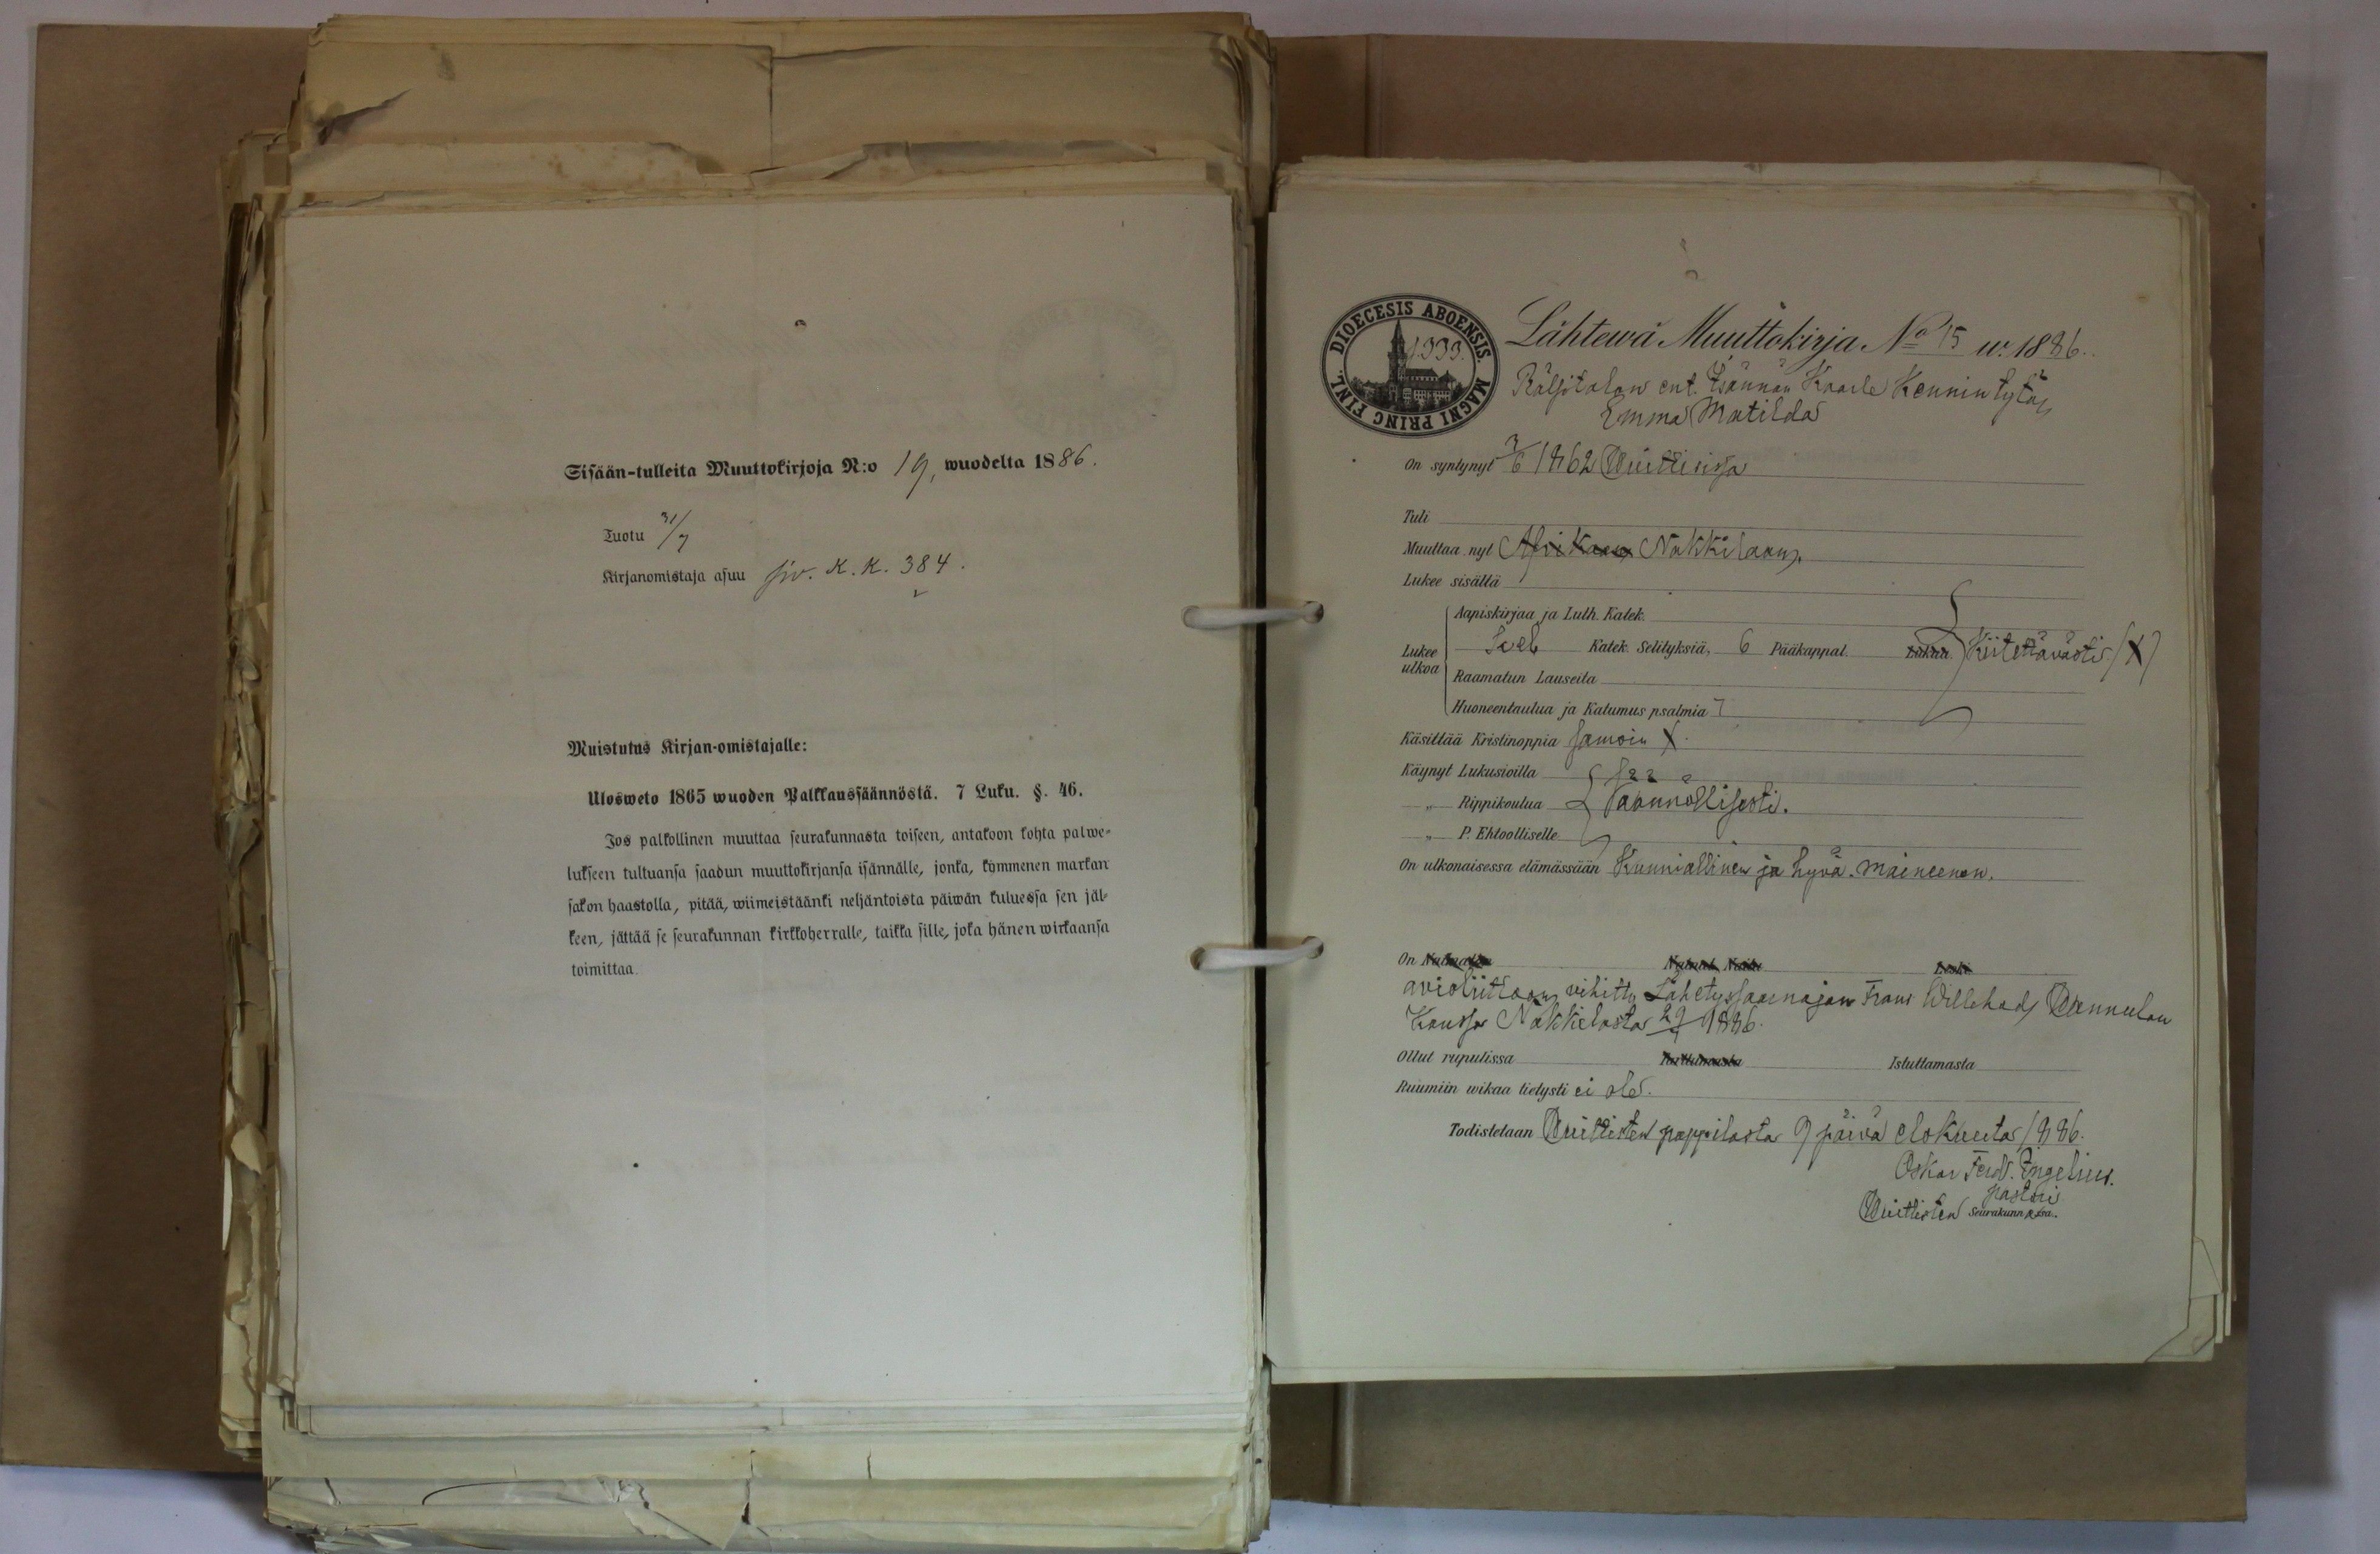 Sisään-tulleita Muuttokirjoja N:o 19, wuodelta 1886.
Tuotu 31/7
Kirjanomistaja asuu siv. K. K. 384.
Muistutus Kirjan-omistajalle:
Ulosweto 1865 wuoden Palkkaussäännöstä. 7 Luku. §. 46.
Jos palkollinen muuttaa seurakunnasta toiseen, antakoon kohta palwe-
lukseen tultuansa saadun muuttokirjansa isännälle, jonka, kymmenen markan
sakon haastolla, pitää, wiimeistäänki neljäntoista päiwän kuluessa sen jäl-
keen, jättää se seurakunnan kirkkoherralle, taikka sille, joka hänen wirkaansa
toimittaa.
DIOECESIS ABOENSIS. MAGNI PRINC FINL.
1333.
Lähtewä Muuttokirja No 15 w. 1886.
ent. Isännän Kaarle Kennin tytär
Emma Matilda
On syntynyt 3/6 1862 Huittisissa
Tuli
Muuttaa nyt Afrikaan Nakkilaan.
Lukee sisältä
Aapiskirjaa ja Luth. Katek.
Lukee ulkoa Sveb Katek. Selityksiä, 6 Pääkappal. Lukua Kiitettävästi (X)
Raamatun Lauseita
Huoneentaulua ja Katumus psalmia 7
Käsittää Kristinoppia samoin X.
Käynyt Lukusioilla
„ Rippikoulua Säännöllisesti.
„ P. Ehtoolliselle
On ulkonaisessa elämässään Kunniallinen ja hyvä maineinen.
On Naimaton Nainut Naitu Leski
avioliittoon vihitty Lähetyssaarnajan Frans Willehad Hannulan
kanssa Nakkilasta 29/7 1886.
Ollut rupulissa Tarttumasta Istuttamasta
Ruumiin wikaa tietysti ei ole.
Todistetaan Huittisten pappilasta 9 päivä elokuuta 1886.
Oskar Ferd. Engelius.
pastori
Huittisten Seurakunnassa.